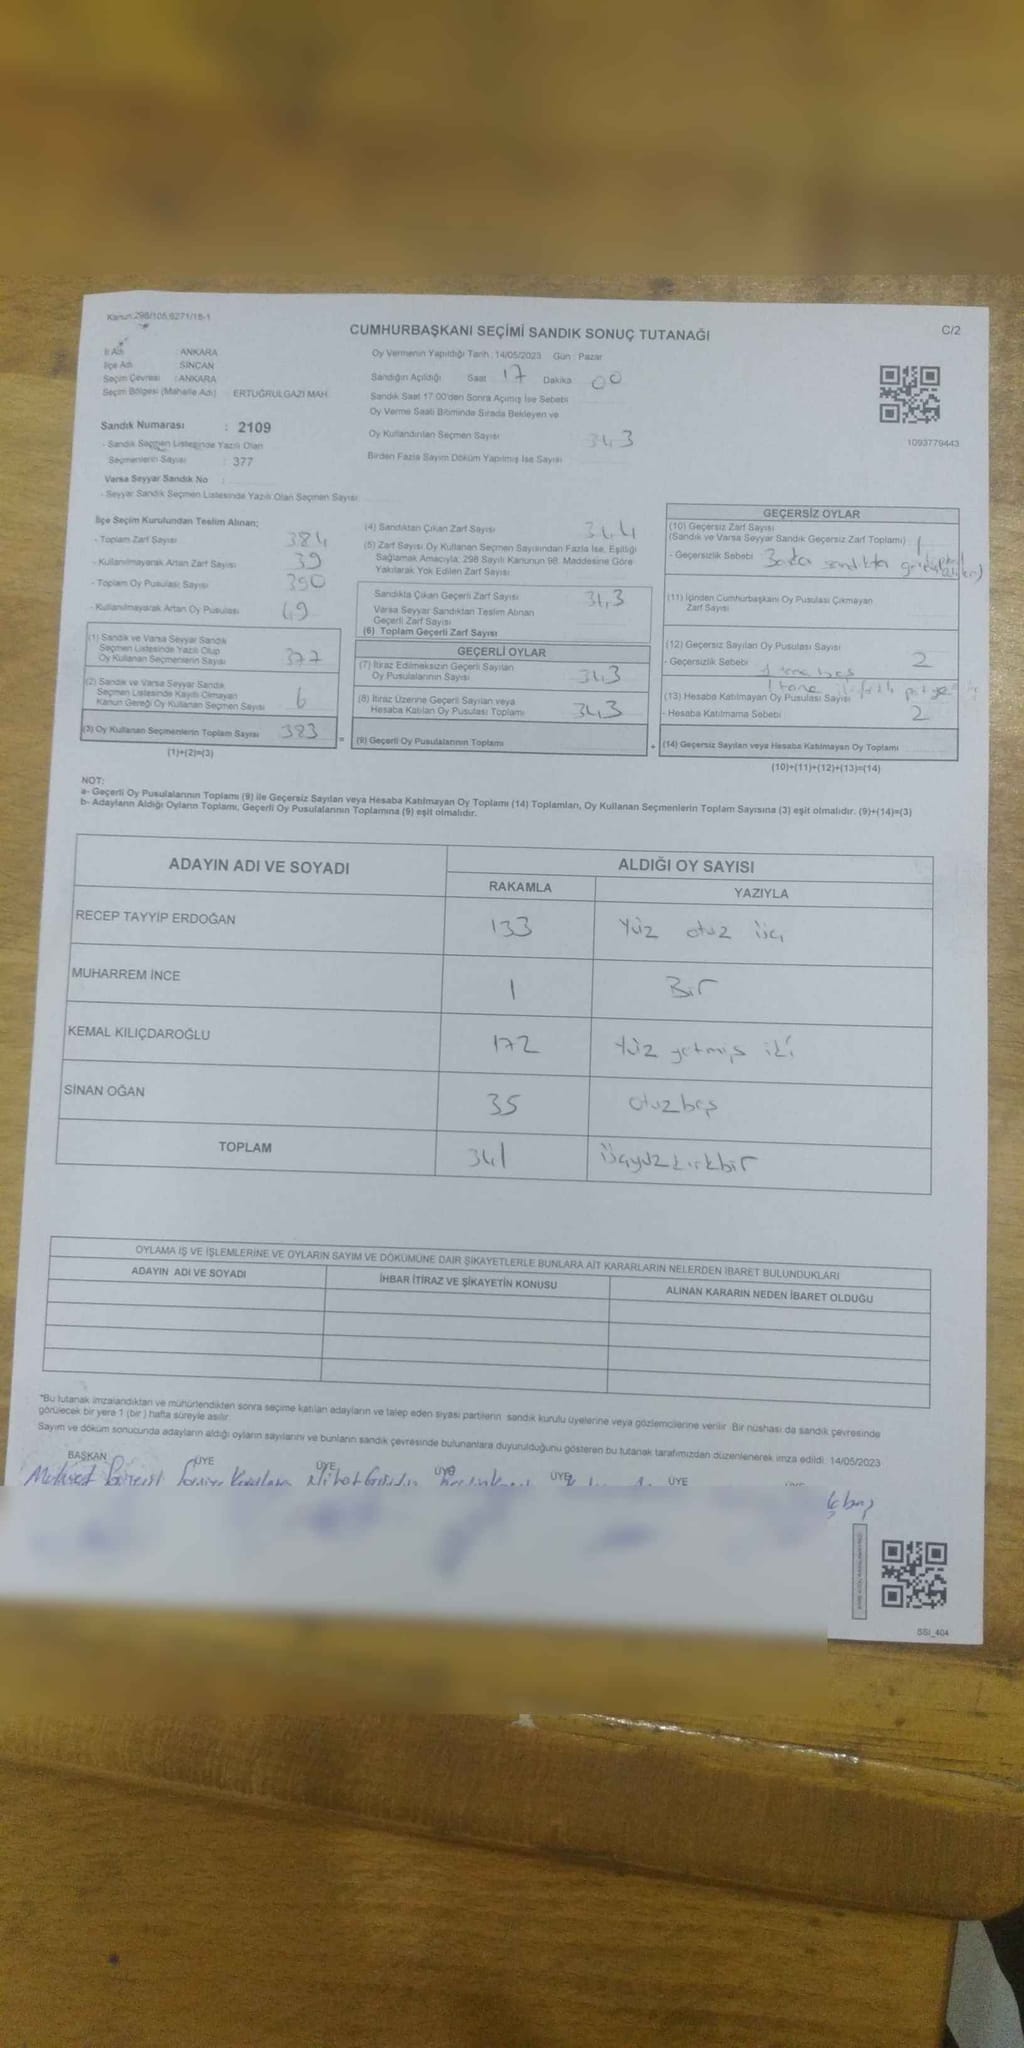 Kanun:298/105,6271/18-1
CUMHURBAŞKANI SEÇİMİ SANDIK SONUÇ TUTANAĞI
C/2
İl Adı ANKARA
İlçe Adı SİNCAN
Seçim Çevresi : ANKARA
Seçim Bölgesi (Mahalle Adı) ERTUĞRULGAZİ MAH.
Oy Vermenin Yapıldığı Tarih : 14/05/2023 Gün : Pazar
Sandığın Açıldığı Saat 17 Dakika 00
Sandık Saat 17.00'den Sonra Açılmış İse Sebebi
Oy Verme Saati Bitiminde Sırada Bekleyen ve
Oy Kullandırılan Seçmen Sayısı 343
Birden Fazla Sayım Döküm Yapılmış İse Sayısı
1093779443
Sandık Numarası : 2109
- Sandık Seçmen Listesinde Yazılı Olan
Seçmenlerin Sayısı : 377
Varsa Seyyar Sandık No
- Seyyar Sandık Seçmen Listesinde Yazılı Olan Seçmen Sayısı
İlçe Seçim Kurulundan Teslim Alınan;
- Toplam Zarf Sayısı 384
- Kullanılmayarak Artan Zarf Sayısı 39
- Toplam Oy Pusulası Sayısı 390
- Kullanılmayarak Artan Oy Pusulası 49
(1) Sandık ve Varsa Seyyar Sandık
Seçmen Listesinde Yazılı Olup
Oy Kullanan Seçmenlerin Sayısı 377
(2) Sandık ve Varsa Seyyar Sandık
Seçmen Listesinde Kayıtlı Olmayan
Kanun Gereği Oy Kullanan Seçmen Sayısı 6
(3) Oy Kullanan Seçmenlerin Toplam Sayısı 383
(1)+(2)=(3)
(4) Sandıktan Çıkan Zarf Sayısı 344
(5) Zarf Sayısı Oy Kullanan Seçmen Sayısından Fazla İse, Eşitliği
Sağlamak Amacıyla, 298 Sayılı Kanunun 98. Maddesine Göre
Yakılarak Yok Edilen Zarf Sayısı
Sandıkta Çıkan Geçerli Zarf Sayısı 343
Varsa Seyyar Sandıktan Teslim Alınan
Geçerli Zarf Sayısı
(6) Toplam Geçerli Zarf Sayısı
GEÇERLİ OYLAR
(7) İtiraz Edilmeksizin Geçerli Sayılan
Oy Pusulalarının Sayısı 343
(8) İtiraz Üzerine Geçerli Sayılan veya
Hesaba Katılan Oy Pusulası Toplamı 343
(9) Geçerli Oy Pusulalarının Toplamı
=
+
GEÇERSİZ OYLAR
(10) Geçersiz Zarf Sayısı
(Sandık ve Varsa Seyyar Sandık Geçersiz Zarf Toplamı) 1
- Geçersizlik Sebebi
(11) İçinden Cumhurbaşkanı Oy Pusulası Çıkmayan
Zarf Sayısı
(12) Geçersiz Sayılan Oy Pusulası Sayısı
- Geçersizlik Sebebi 1 tane boş 2
1 tane
(13) Hesaba Katılmayan Oy Pusulası Sayısı
- Hesaba Katılmama Sebebi 2
(14) Geçersiz Sayılan veya Hesaba Katılmayan Oy Toplamı
(10)+(11)+(12)+(13)=(14)
NOT:
a- Geçerli Oy Pusulalarının Toplamı (9) ile Geçersiz Sayılan veya Hesaba Katılmayan Oy Toplamı (14) Toplamları, Oy Kullanan Seçmenlerin Toplam Sayısına (3) eşit olmalıdır. (9)+(14)=(3)
b- Adayların Aldığı Oyların Toplamı, Geçerli Oy Pusulalarının Toplamına (9) eşit olmalıdır.
ADAYIN ADI VE SOYADI
ALDIĞI OY SAYISI
RAKAMLA YAZIYLA
RECEP TAYYİP ERDOĞAN 133 Yüz otuz üç
MUHARREM İNCE 1 Bir
KEMAL KILIÇDAROĞLU 172 Yüz yetmiş iki
SİNAN OĞAN 35 otuzbeş
TOPLAM 341 üçyüzkırkbir
OYLAMA İŞ VE İŞLEMLERİNE VE OYLARIN SAYIM VE DÖKÜMÜNE DAİR ŞİKAYETLERLE BUNLARA AİT KARARLARIN NELERDEN İBARET BULUNDUKLARI
ADAYIN ADI VE SOYADI İHBAR İTİRAZ VE ŞİKAYETİN KONUSU ALINAN KARARIN NEDEN İBARET OLDUĞU
*Bu tutanak imzalandıktan ve mühürlendikten sonra seçime katılan adayların ve talep eden siyasi partilerin sandık kurulu üyelerine veya gözlemcilerine verilir. Bir nüshası da sandık çevresinde
görülecek bir yere 1 (bir ) hafta süreyle asılır.
Sayım ve döküm sonucunda adayların aldığı oyların sayılarını ve bunların sandık çevresinde bulunanlara duyurulduğunu gösteren bu tutanak tarafımızdan düzenlenerek imza edildi. 14/05/2023
BAŞKAN ÜYE ÜYE ÜYE ÜYE ÜYE
SSI_404